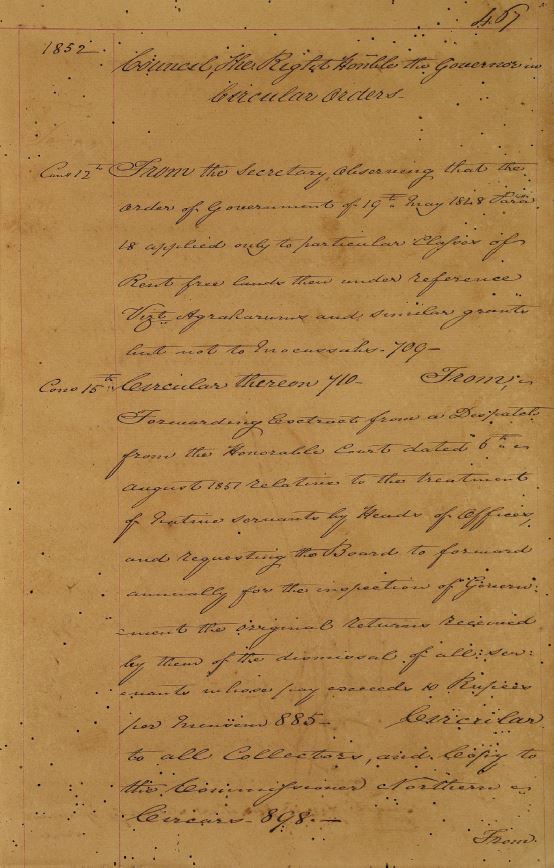 467
1852.
Council, the Right Honble the Governor in
Circular Orders-
Cons 12th From the Secretary, observing that the
order of Government of 19th May 1848 Para
18 applied only to particular Classes of
Rent free lands then under reference
Vizt. Agraharums and similar grants
but not to Mocassahs- 709-
Cons 15th Circular thereon 710- From,
Forwarding Extract from a Despatch
from the Honorable Court dated 6th
August 1851 relative to the treatment
of Native servants by Heads of Offices,
and requesting the Board to forward
annually for the inspection of Govern:
:ment the original returns received
by them of the dismissal of all ser:
:vants whose pay exceeds 10 Rupees
per Mensem 885- Circular
to all Collectors, and Copy to
the Commissioner Northern
Circars- 898.-
From